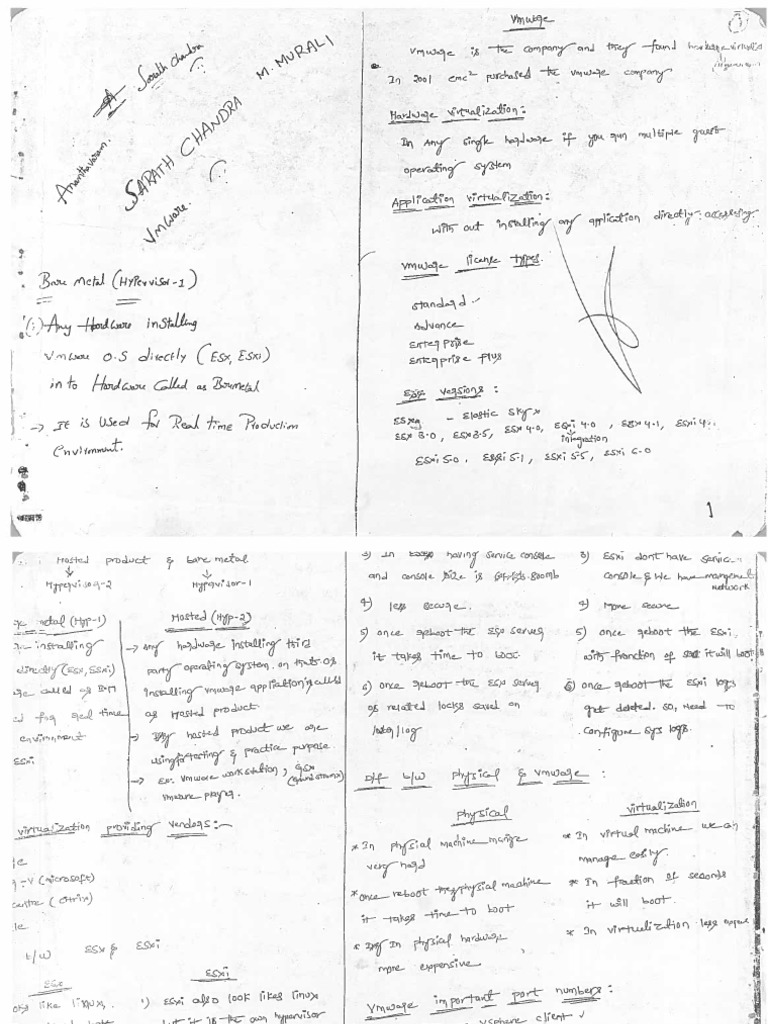 A Sarath Chandra
Ananthavaram.
SARATH CHANDRA M. MURALI
VMware.
Bare Metal (Hypervisor-1)
(i) Any Hardware installing
VMware O.S directly (ESX, ESXi)
in to Hardware Called as Baremetal
→ It is Used for Real time Production
Environment.
Vmware
Vmware is the company and they found
In 2001 emc² purchased the vmware company
Hardware virtualization:
In Any single hardware if you run multiple guest
operating system
Application virtualization:
with out installing any application directly accessing.
Vmware license types
standard
Advance
Enterprise
Enterprise plus
ESX versions:
- Elastic sky x
ESX 3.0, ESX 3.5, ESX 4.0, ESXi 4.0, ESX 4.1, ESXi 4.
integration
ESXi 5.0, ESXi 5.1, ESXi 5.5, ESXi 6.0
1
Hosted product & bare metal
Hypervisor-2 Hypervisor-1
metal (Hyp-1)
installing
directly (ESX, ESXi)
are called as BM
ed for real time
environment
ESXi
Hosted (Hyp-2)
→ Any hardware installing third
party operating system. on that os
installing vmware application is called
as Hosted product.
→ hosted product we are
using for testing & practice purpose
→ Ex: Vmware workstation, GSX
vmware player.
virtualization providing vendors:-
-V (microsoft)
centre (citrix)
b/w ESX & ESXi
ESX
look like linux,
ESXi
1) ESXi also look likes linux
but it is the own hypervisor
3) In having service console
and console size is 800mb
4) less secure.
5) once reboot the ESX server
it takes time to boot.
6) once reboot the ESX server
of related locks saved on
/log
3) ESXi dont have service
console & we have management
network
4) More secure
5) once reboot the ESXi.
with fraction of sec it will boot
6) once reboot the ESXi logs
get deleted. so, need to
configure sys logs.
Diff b/w physical & vmware:
physical
* In physical machine manage
very hard
* once reboot the physical machine
it takes time to boot
* In physical hardware
more expensive
virtualization
* In virtual machine we can
manage easily.
* In fraction of seconds
it will boot.
* In virtualization less
Vmware important port numbers:
vsphere client